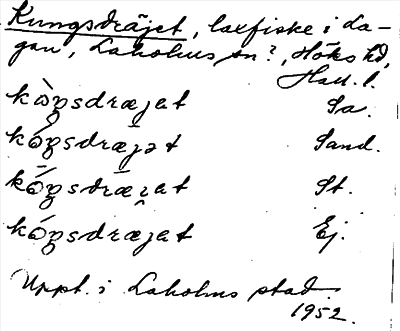 Kungsdräjet, laxfiske i La-
gan, Laholms sn?, Höks hd,
Hall. l.
kòŋsdræjat Sa.
kóŋsdræjət Sand.
kóŋsdræjat St.
kóŋsdræjat Ej.
Uppt. i Laholms stad.
1952.